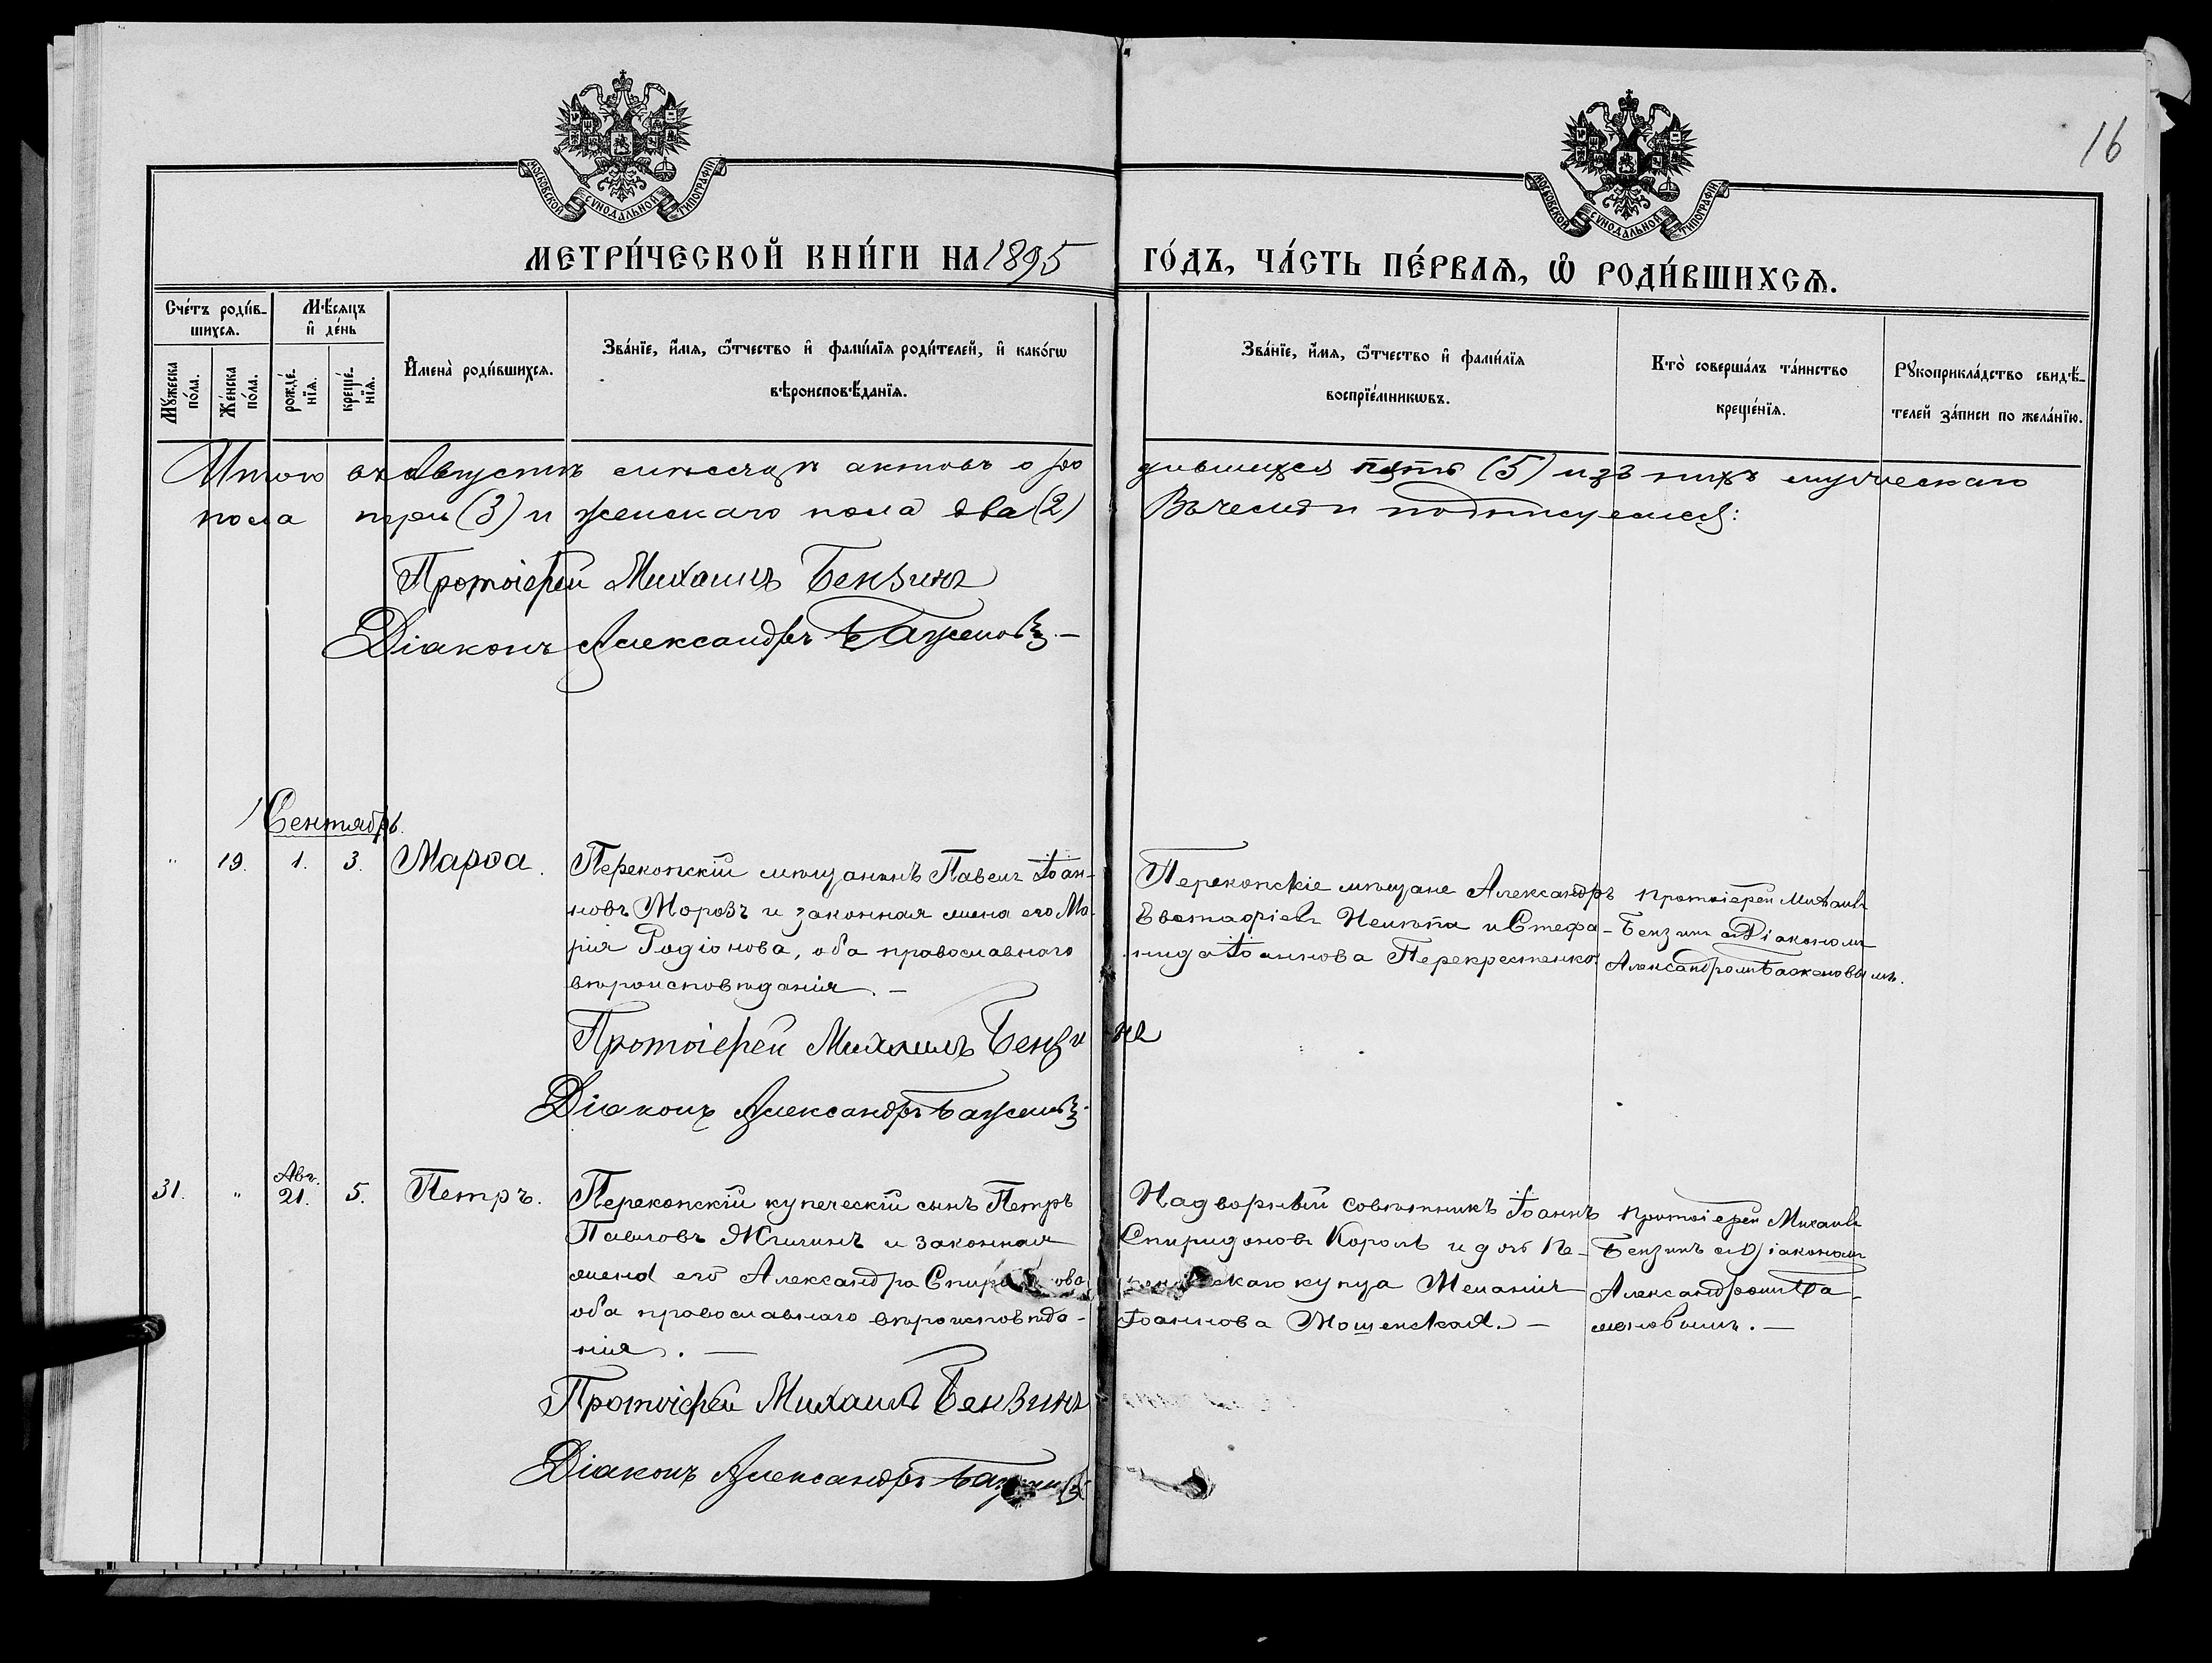 16
МОСКОВСКОЙ СѴНОДАЛЬНОЙ ТИПОГРАФІИ
МОСКОВСКОЙ СѴНОДАЛЬНОЙ ТИПОГРАФІИ
МЕТРИ́ЧЕСКОЙ КНИ́ГИ НА 1895 ГО́ДЪ, ЧА́СТЬ ПЕ́РВАѦ, Ѡ҆ РОДИ́ВШИХСѦ.
Сче́тъ роди́в-
шихсѧ.
Мꙋ́жеска
по́ла.
Же́нска
по́ла.
Мѣ́сѧцъ
и҆ де́нь
рожде́-
нїѧ.
креще́-
нїѧ.
И҆мена̀ роди́вшихсѧ.
Зва́нїе, и҆́мѧ, ѻ҆́тчество и҆ фами́лїѧ роди́телей, и҆ како́гѡ
вѣроисповѣ́данїѧ.
Зва́нїе, и҆́мѧ, ѻ҆́тчество и҆ фами́лїѧ
воспрїе́мникѡвъ.
Кто̀ соверша́лъ та́инство
креще́нїѧ.
Рꙋкоприкла́дство свидѣ́-
телей за́писи по жела́нїю.
Итого въ Августѣ мѣсяцѣ актовъ о родившихся пять (5) изъ нихъ мужескаго
пола три (3) и женскаго пола два (2) Въ чемъ и подписуемся:
Протоіерей Михаилъ Бензинъ
Діаконъ Александръ Баженовъ. —
Сентябрь.
" 19. 1. 3. Марѳа.
Перекопскій мѣщанинъ Павелъ Іоан-
новъ Морозъ и законная жена его Ма-
рія Родіонова, оба православнаго
вѣроисповѣданія. —
Перекопскіе мѣщане Александръ
Евстафіевъ Нелѣпа и Стефа-
нида Іоаннова Перекрестенко
Протоіерей Михаилъ
Бензинъ съ Діакономъ
Александромъ Баженовымъ.
Протоіерей Михаилъ Бензинъ
Діаконъ Александръ Баженовъ.
31. " Авг. 21. 5. Петръ.
Перекопскій купеческій сынъ Петръ
Павловъ Жилинъ и законная
жена его Александра
оба православнаго вѣроисповѣда-
нія. —
Надворный совѣтникъ Іоаннъ
Спиридоновъ Король и дочь Пе-
купца Меланія
Іоаннова Мошенская. —
Протоіерей Михаилъ
Бензинъ съ Діакономъ
Александромъ Ба-
женовымъ. —
Протоіерей Михаилъ Бензинъ
Діаконъ Александръ Баженовъ